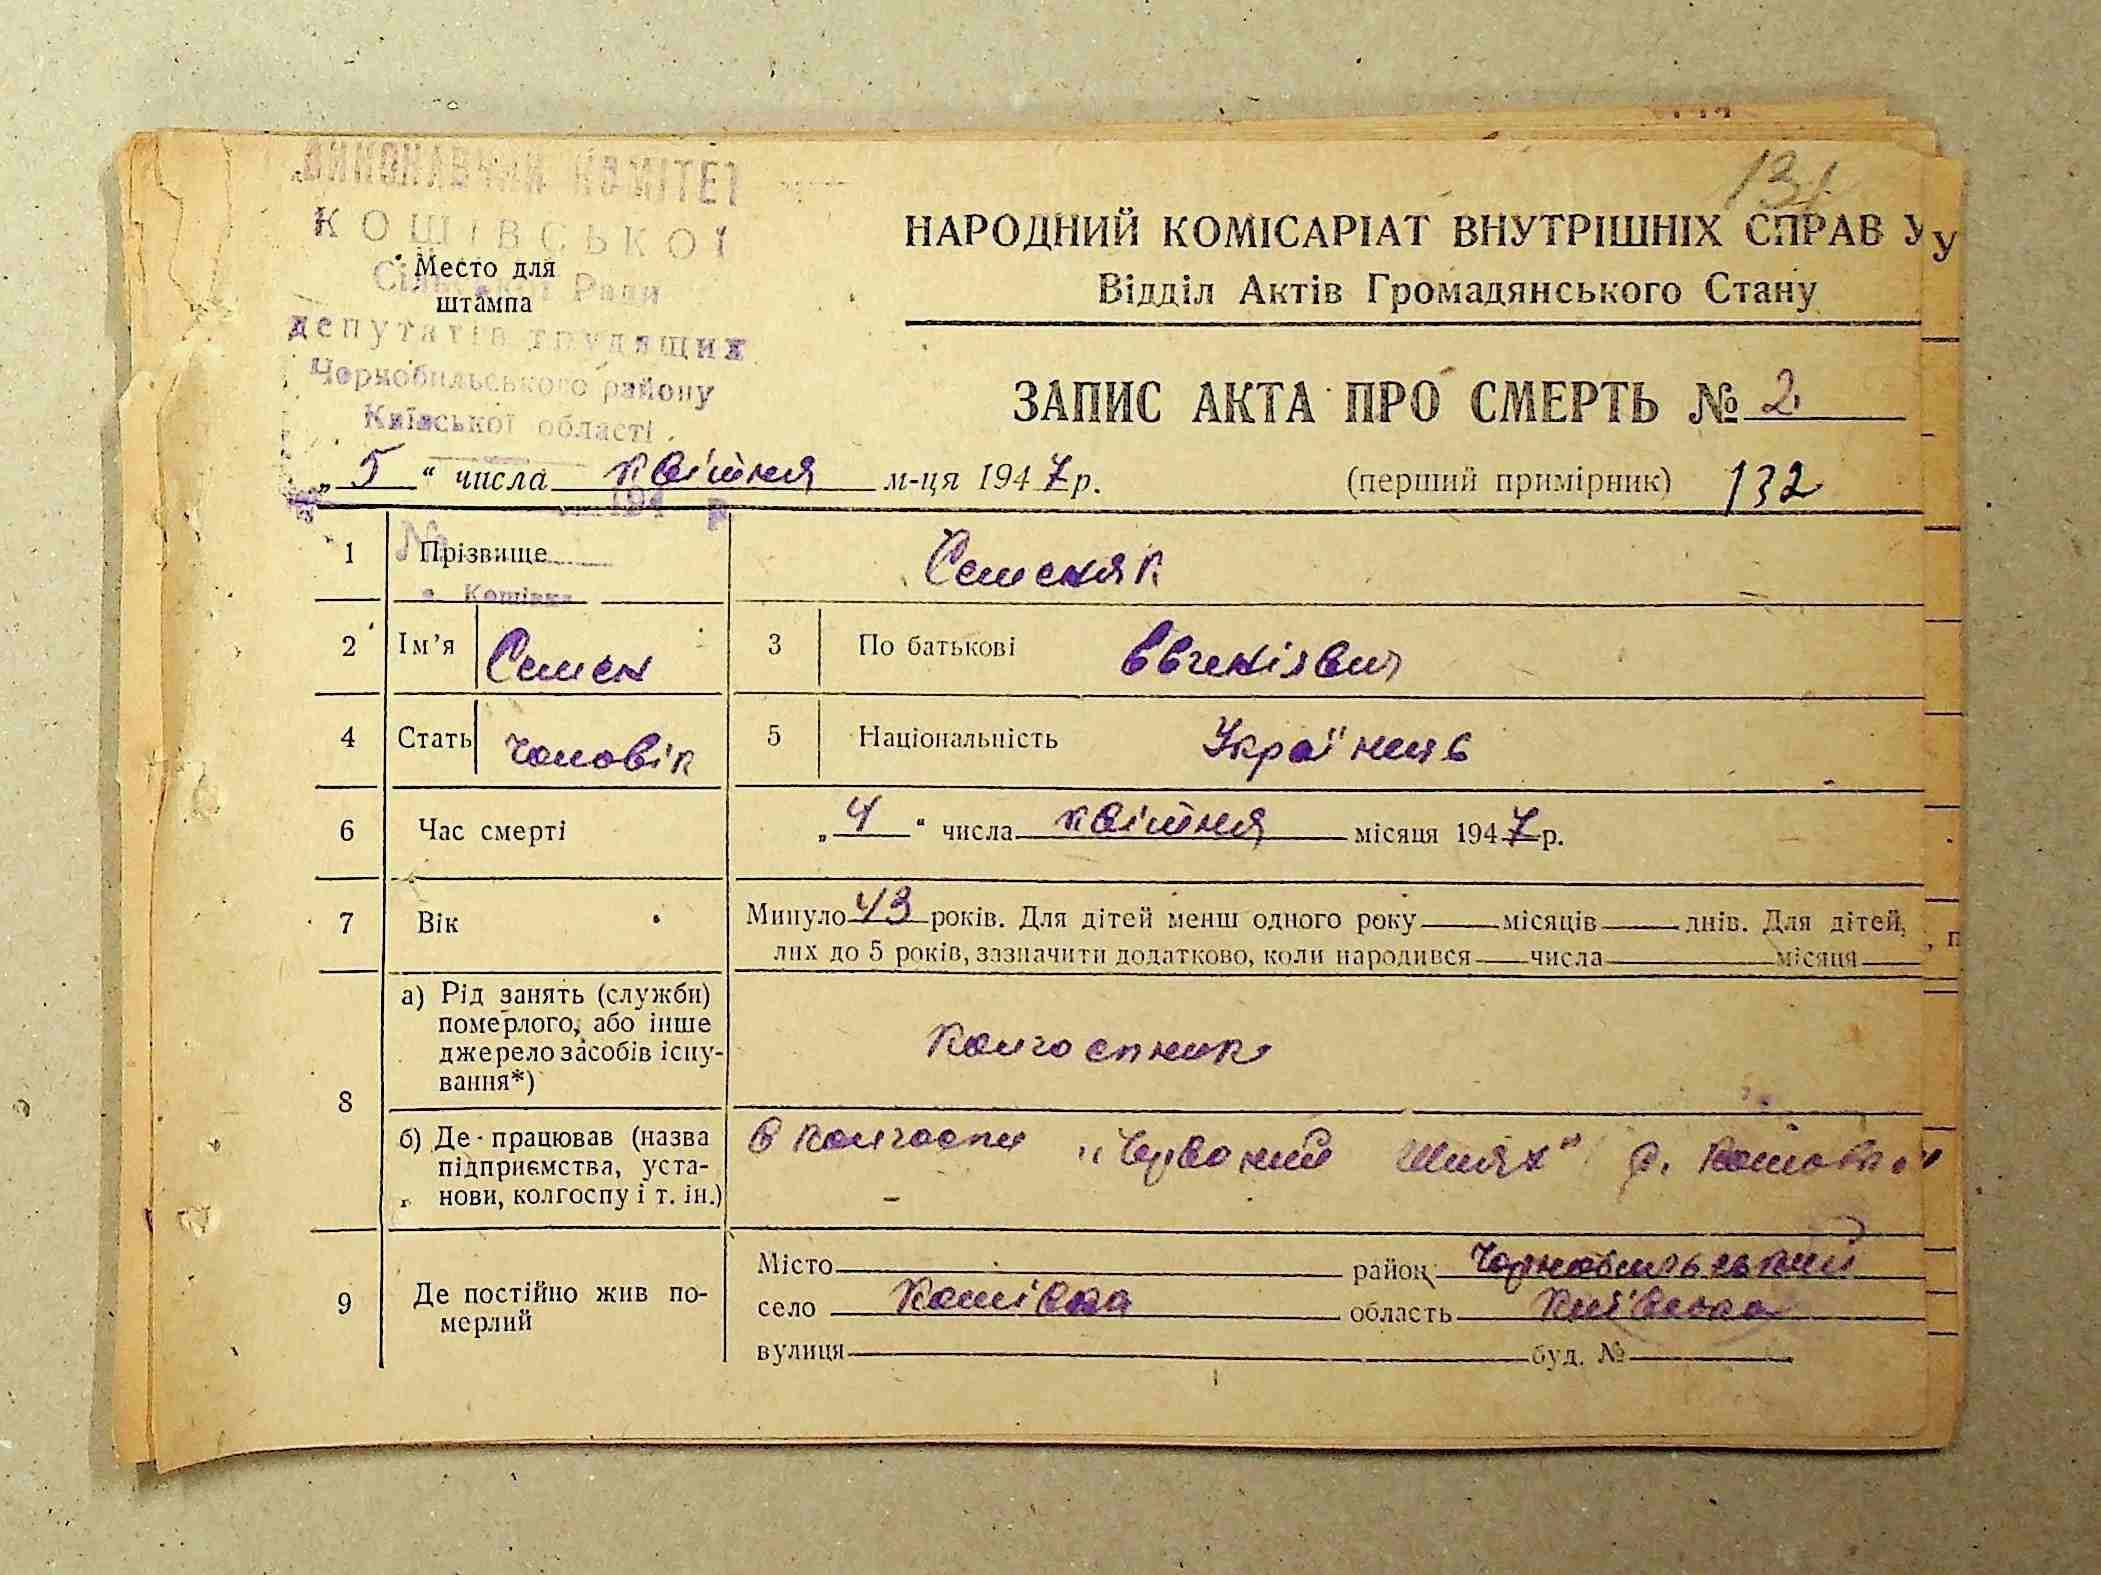 ВИКОНАВЧИЙ КОМІТЕТ
КОШІВСЬКОЇ
Сільської Ради
депутатів трудящих
Чорнобильського району
Київської області
194 р
№
с. Кошівка
Место для
штампа
131
НАРОДНИЙ КОМІСАРІАТ ВНУТРІШНІХ СПРАВ У
Відділ Актів Громадянського Стану
ЗАПИС АКТА ПРО СМЕРТЬ № 2
„5“ числа квітня м-ця 1947 р. (перший примірник) 132
1 Прізвище Семеняк
2 Ім'я Семен 3 По батькові Євгенієвич
4 Стать чоловік 5 Національність Українець
6 Час смерті „4“ числа квітня місяця 1947 р.
7 Вік Минуло 43 років. Для дітей менш одного року місяців днів. Для дітей,
лих до 5 років, зазначити додатково, коли народився числа місяця
8 а) Рід занять (служби)
померлого, або інше
джерело засобів існу-
вання*) Колгоспник
б) Де працював (назва
підприємства, уста-
нови, колгоспу і т. ін.) В колгоспі „Червоний Шлях“ с. Кошовка
9 Де постійно жив по-
мерлий
Місто район Чорнобильський
село Кошівка область Київська
вулиця буд. №